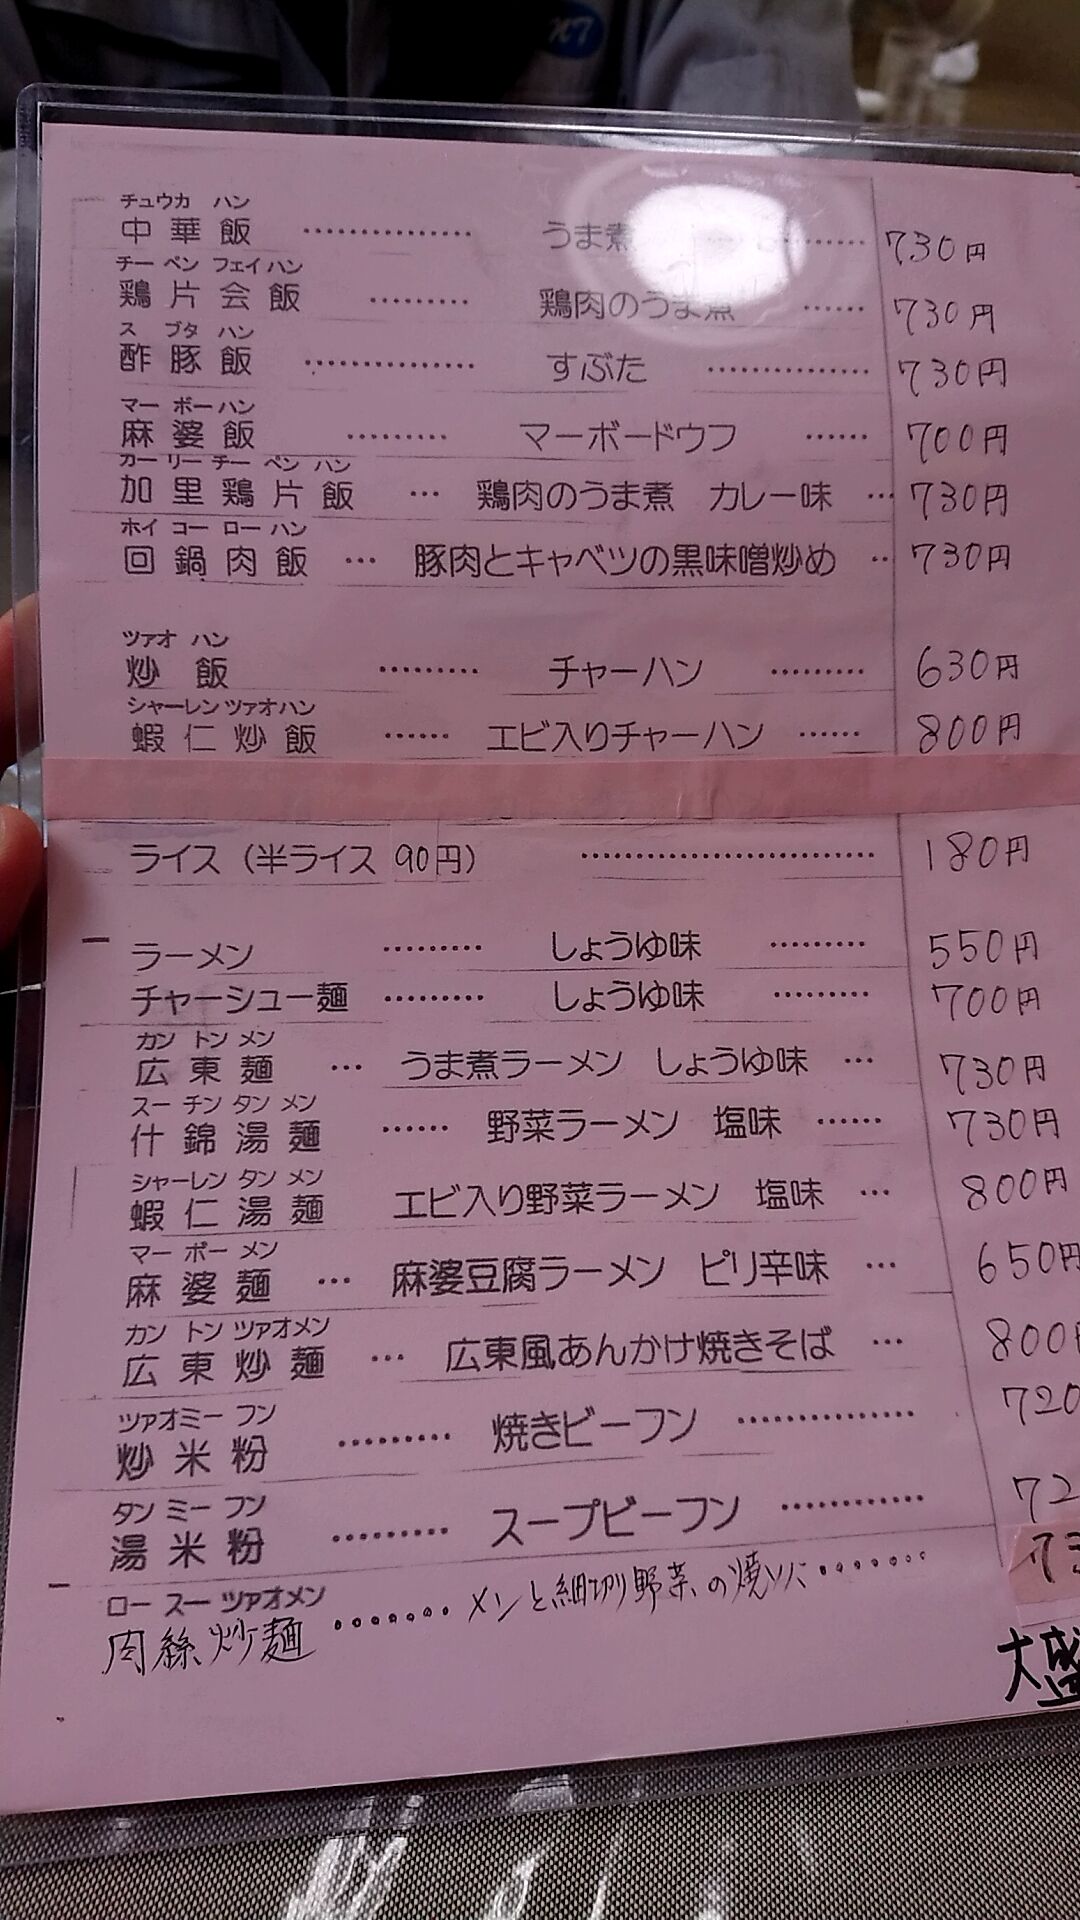 チュウカ ハン
中華飯 ……………… うま煮 …… 730円
チー ペン フェイ ハン
鶏片会飯 ……… 鶏肉のうま煮 …… 730円
ス ブタ ハン
酢豚飯 ……………… すぶた …………… 730円
マー ボー ハン
麻婆飯 ……… マーボードウフ …… 700円
カー リー チー ペン ハン
加里鶏片飯 … 鶏肉のうま煮 カレー味 … 730円
ホイ コー ロー ハン
回鍋肉飯 … 豚肉とキャベツの黒味噌炒め ‥ 730円
ツァオ ハン
炒飯 ……… チャーハン ……… 630円
シャーレン ツァオ ハン
蝦仁炒飯 …… エビ入りチャーハン …… 800円
ライス(半ライス 90円) ……………………… 180円
ラーメン ……… しょうゆ味 ……… 550円
チャーシュー麺 ……… しょうゆ味 ……… 700円
カン トン メン
広東麺 … うま煮ラーメン しょうゆ味 … 730円
スー チン タン メン
什錦湯麺 …… 野菜ラーメン 塩味 …… 730円
シャーレン タン メン
蝦仁湯麺 エビ入り野菜ラーメン 塩味 … 800円
マー ボー メン
麻婆麺 … 麻婆豆腐ラーメン ピリ辛味 … 650円
カン トン ツァオメン
広東炒麺 … 広東風あんかけ焼きそば … 800円
ツァオミー フン
炒米粉 ……… 焼きビーフン …………… 720
タン ミー フン
湯米粉 ……… スープビーフン ………… 72
ロー スー ツァオメン
肉絲炒麺 ……… メンと細切り野菜の焼ソバ ……… 73
大盛